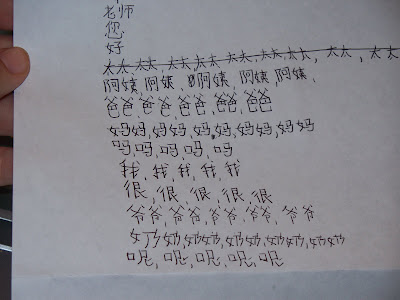 老师
您
好
太太,太太,太太,太太,太太,太太,太太,太太
阿姨,阿姨,阿姨,阿姨,阿姨,
爸爸,爸爸,爸爸,爸爸,爸爸
妈妈,妈妈,妈妈,妈妈,妈妈
吗,吗,吗,吗,吗
我,我,我,我,我
很,很,很,很,很
爷爷,爷爷,爷爷,爷爷,爷爷
奶奶,奶奶,奶奶,奶奶,奶奶,奶奶
呢,呢,呢,呢,呢